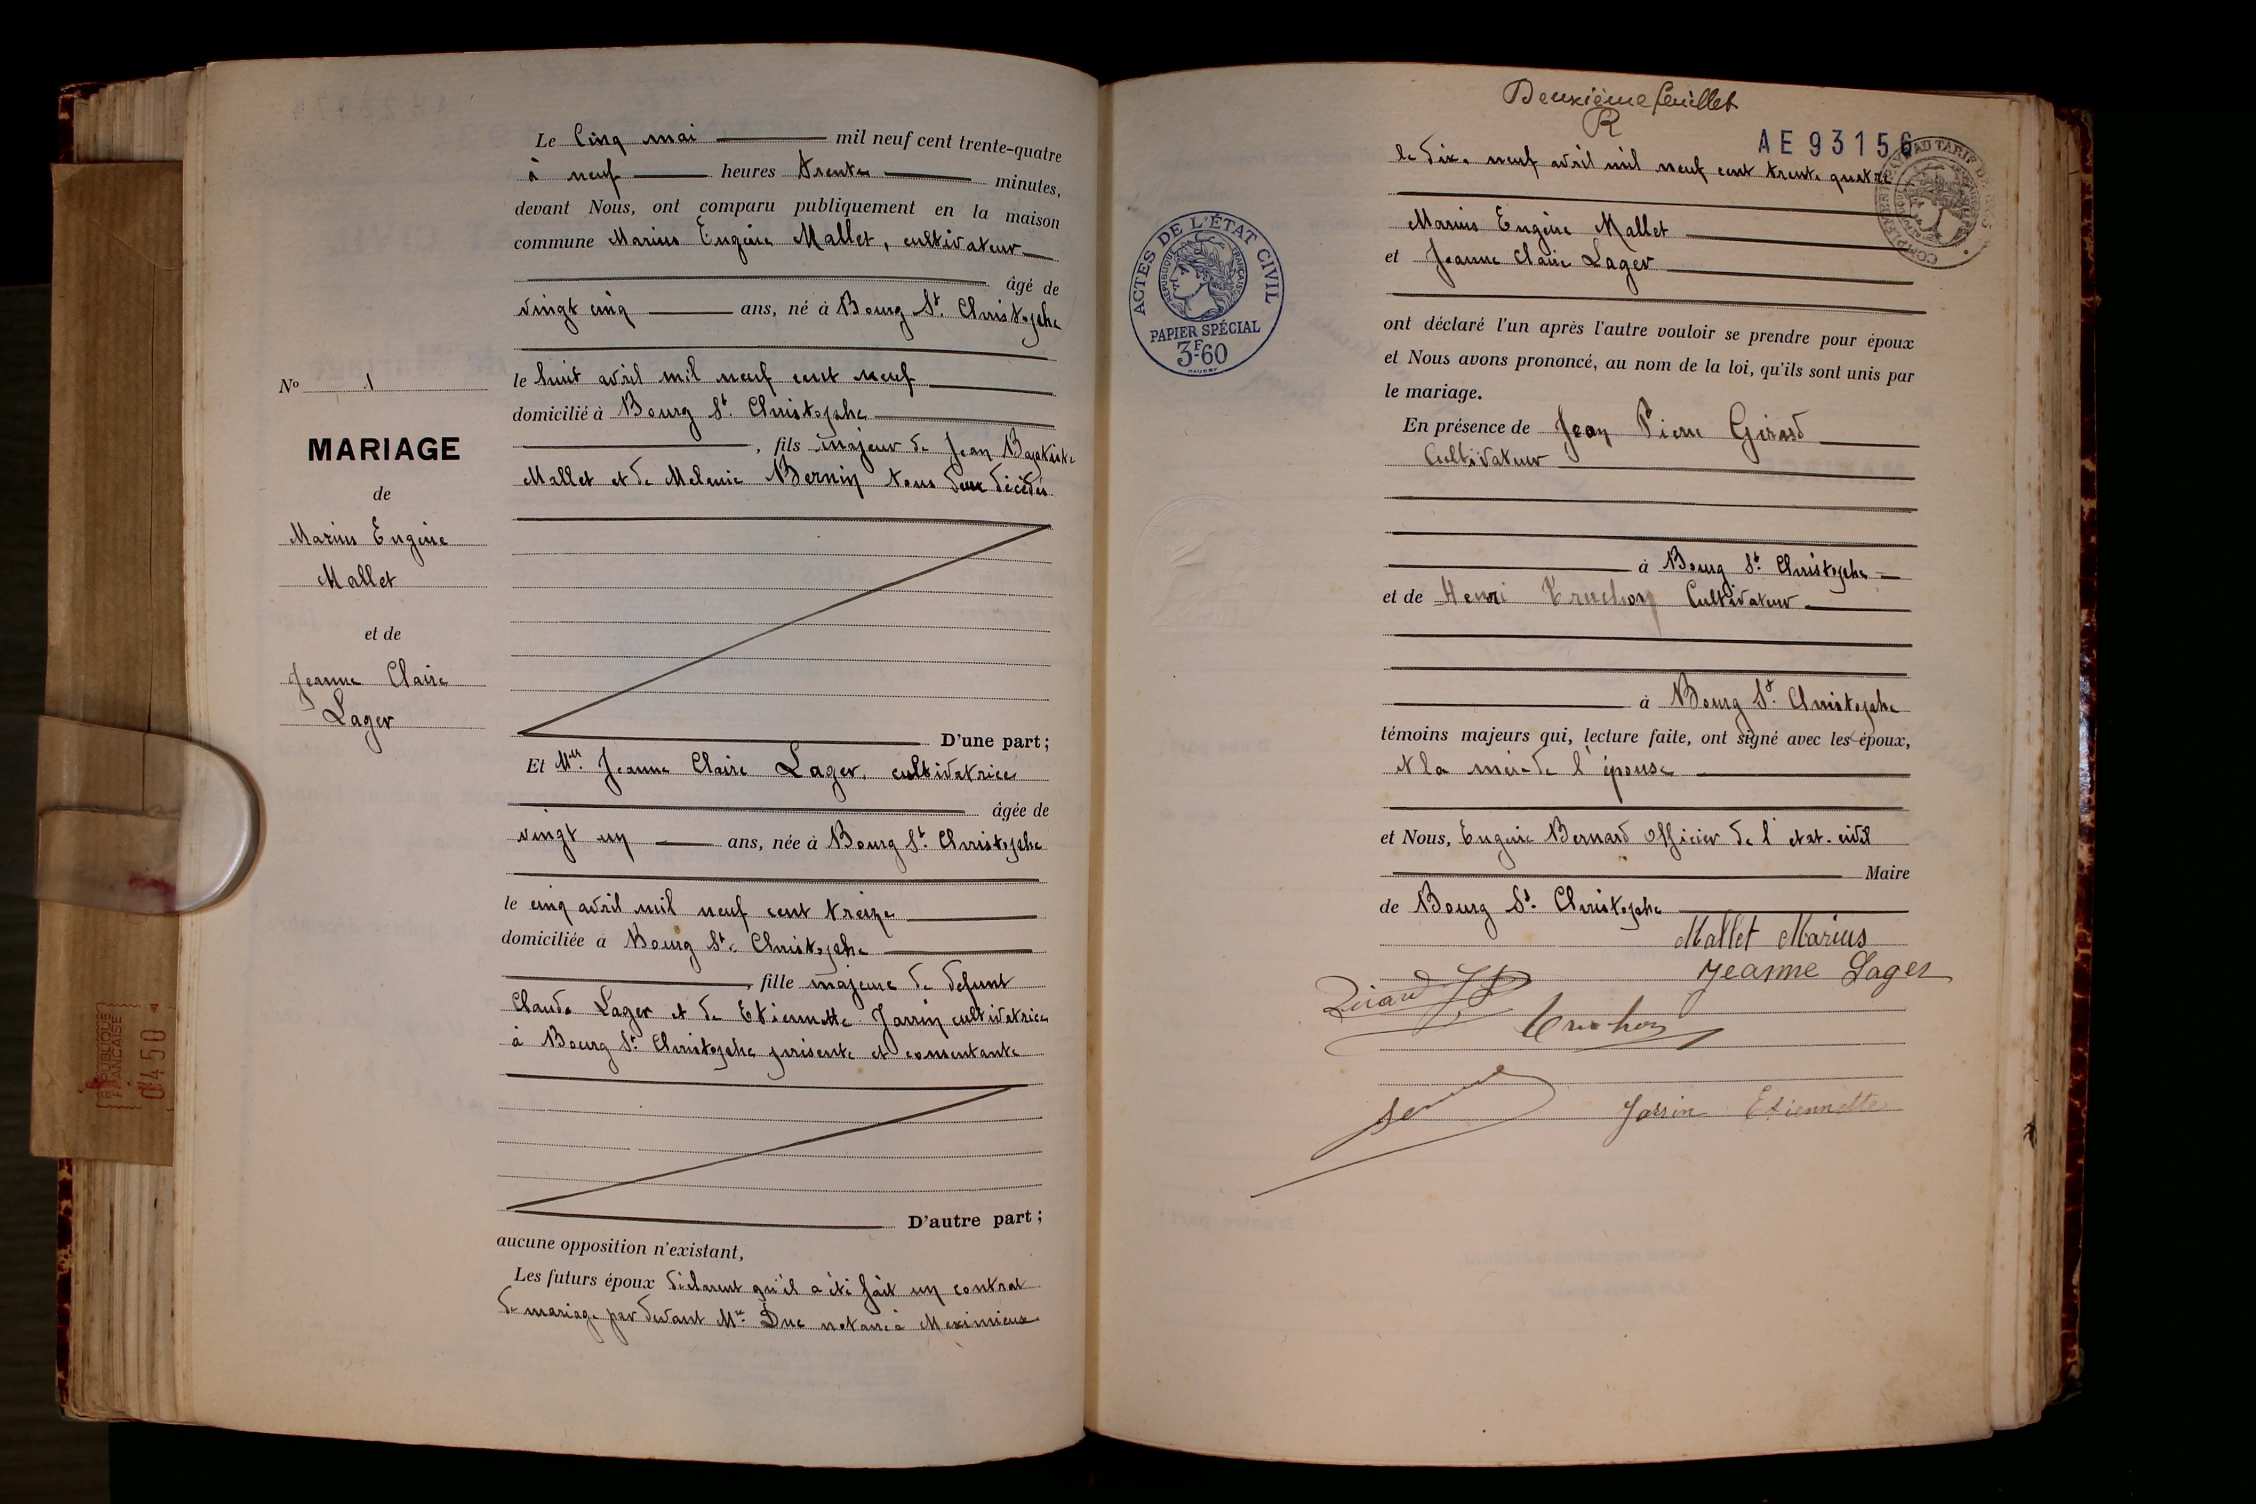 Le Cinq mai mil neuf cent trente-quatre
à neuf heures trente minutes,
devant Nous, ont comparu publiquement en la maison
commune Marius Eugène Mallet, cultivateur
âgé de
vingt cinq ans, né à Bourg St. Christophe
le huit avril mil neuf cent neuf
domicilié à Bourg St. Christophe
, fils majeur de Jean Baptiste
Mallet et de Melanie Bernin tous deux décédés
D'une part;
Et Mlle. Jeanne Claire Lager, cultivatrice
âgée de
vingt un ans, née à Bourg St. Christophe
le cinq avril mil neuf cent treize
domiciliée à Bourg St. Christophe
, fille majeure de defunt
Claude Lager et de Etiennette Jarrin cultivatrice
à Bourg St. Christophe présente et consentante
D'autre part;
aucune opposition n'existant,
Les futurs époux déclarent qu'il a été fait un contrat
de mariage par devant Me Duc notaire à Meximieux
No 1
MARIAGE
de
Marius Eugène
Mallet
et de
Jeanne Claire
Lager
RÉPUBLIQUE
FRANÇAISE
0450
Deuxième feuillet
R
AE 93156
ACTES DE L'ÉTAT CIVIL
RÉPUBLIQUE FRANÇAISE
PAPIER SPÉCIAL
3F60
le dix-neuf avril mil neuf cent trente quatre
Marius Eugène Mallet
et Jeanne Claire Lager
ont déclaré l'un après l'autre vouloir se prendre pour époux
et Nous avons prononcé, au nom de la loi, qu'ils sont unis par
le mariage.
En présence de Jean Pierre Girard
Cultivateur
à Bourg St. Christophe
et de Henri Truchon Cultivateur
à Bourg St. Christophe
témoins majeurs qui, lecture faite, ont signé avec les époux,
et la mère de l'épouse
et Nous, Eugène Bernard officier de l'etat-civil
Maire
de Bourg St. Christophe
Mallet Marius
Jeanne Lager
Girard J P
Truchon
Jarrin Etiennette